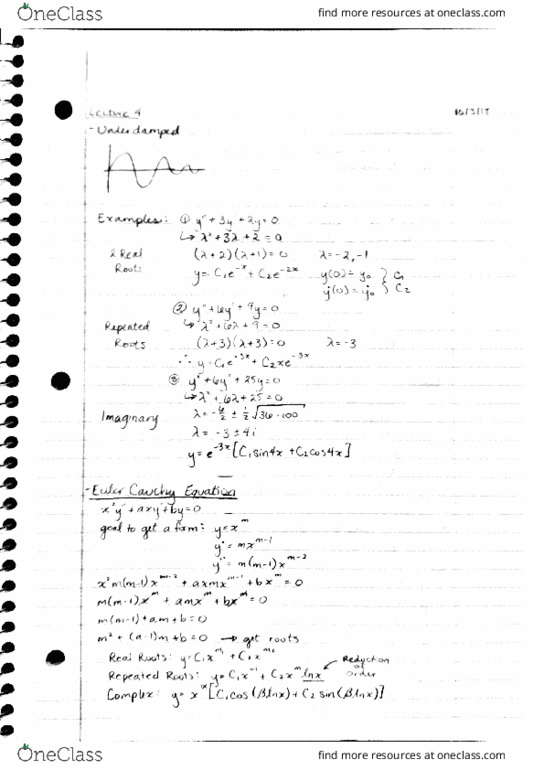 OneClass find more resources at oneclass.com
Lecture 4 10/3/17
- Underdamped
Examples: ① y" + 3y' + 2y = 0
↳ λ² + 3λ + 2 = 0
2 Real (λ+2)(λ+1) = 0 λ = -2, -1
Roots y = C₁e^-x + C₂e^-2x y(0) = y₀ } C₁
y'(0) = y'₀ } C₂
② y" + 6y' + 9y = 0
Repeated ↳ λ² + 6λ + 9 = 0
Roots (λ+3)(λ+3) = 0 λ = -3
∴ y = C₁e^-3x + C₂xe^-3x
③ y" + 6y' + 25y = 0
↳ λ² + 6λ + 25 = 0
Imaginary λ = -6/2 ± 1/2 √36-100
λ = -3 ± 4i
y = e^-3x [C₁sin4x + C₂cos4x]
- Euler Cauchy Equation
x²y" + axy' + by = 0
goal to get a form: y = x^m
y' = mx^m-1
y" = m(m-1)x^m-2
x²m(m-1)x^m-2 + axmx^m-1 + bx^m = 0
m(m-1)x^m + amx^m + bx^m = 0
m(m-1) + am + b = 0
m² + (a-1)m + b = 0 → get roots
Real Roots: y = C₁x^m₁ + C₂x^m₂ Reduction of
Repeated Roots: y = C₁x^m + C₂x^m lnx order
Complex: y = x^α [C₁cos(βlnx) + C₂ sin(βlnx)]
OneClass find more resources at oneclass.com